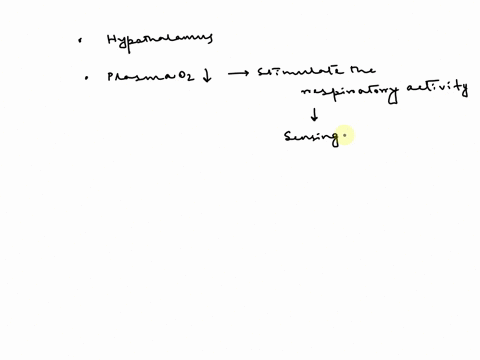 • Hypothalamus
• Plasma O2 ↓ → Stimulate the
respiratory activity
↓
Sensing